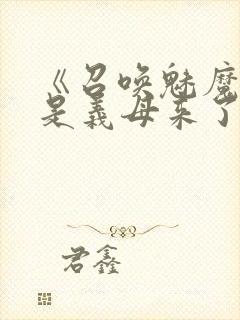 《召唤魅魔
是义母来了
君鑫